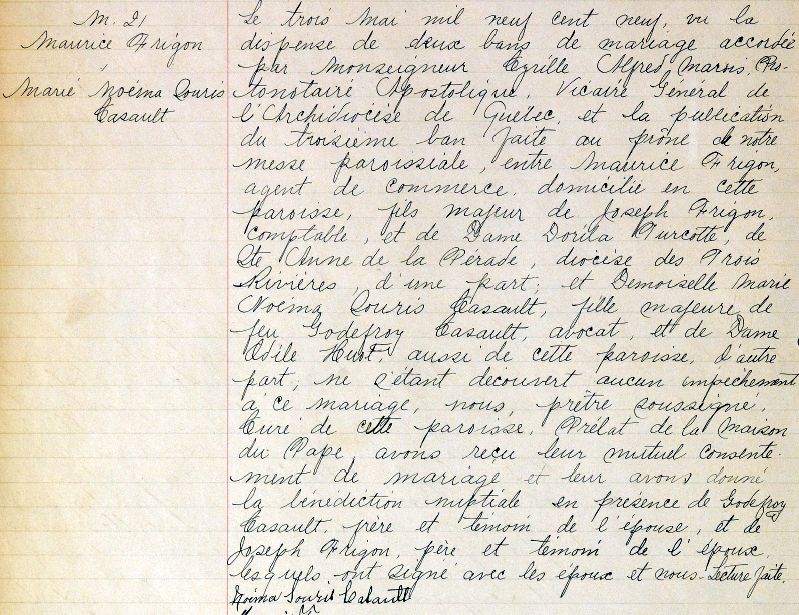 M. 21
Maurice Frigon
&
Marie Noéma Souris
Casault
Le trois Mai mil neuf cent neuf, vu la
dispense de deux bans de mariage accordée
par Monseigneur Cyrille Alfred Marois, Pro-
tonotaire Apostolique, Vicaire Général de
l'Archidiocèse de Québec, et la publication
du troisième ban faite au prône de notre
messe paroissiale, entre Maurice Frigon,
agent de commerce, domicilié en cette
paroisse, fils majeur de Joseph Frigon,
comptable, et de Dame Dorila Turcotte, de
Ste Anne de la Pérade, diocèse des Trois
Rivières, d'une part; et Demoiselle Marie
Noéma Souris Casault, fille majeure de
feu Godefroy Casault, avocat, et de Dame
Odile Huot, aussi de cette paroisse, d'autre
part, ne s'étant découvert aucun empêchement
à ce mariage, nous, prêtre soussigné,
Curé de cette paroisse, Prélat de la Maison
du Pape, avons reçu leur mutuel consente-
ment de mariage et leur avons donné
la bénédiction nuptiale en présence de Godefroy
Casault, frère et témoin de l'épouse, et de
Joseph Frigon, père et témoin de l'époux,
lesquels ont signé avec les époux et nous. Lecture faite.
Noéma Souris Casault